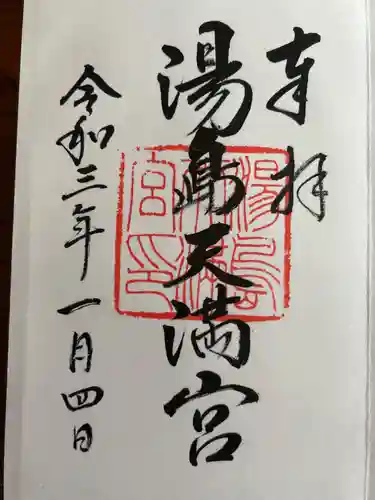 奉拝
湯島天満宮
令和三年一月四日
湯島
天満
宮印